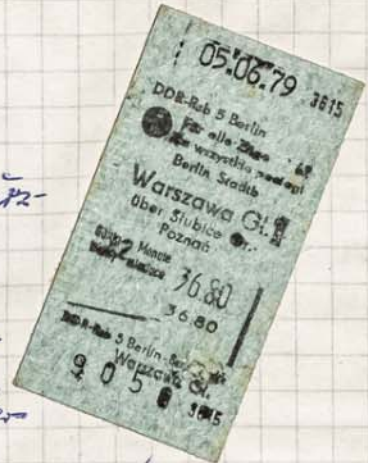 05.06.79 3615
DDR-Rsb 5 Berlin
Für alle Züge
wszystkie
Berlin Stadtb
Warszawa Gł.
über Słubice Gr.
Poznań
2 Monate
miesiące 36.80
36.80
DDR-Rsb 5 Berlin
Warszawa Gł.
9050 3615